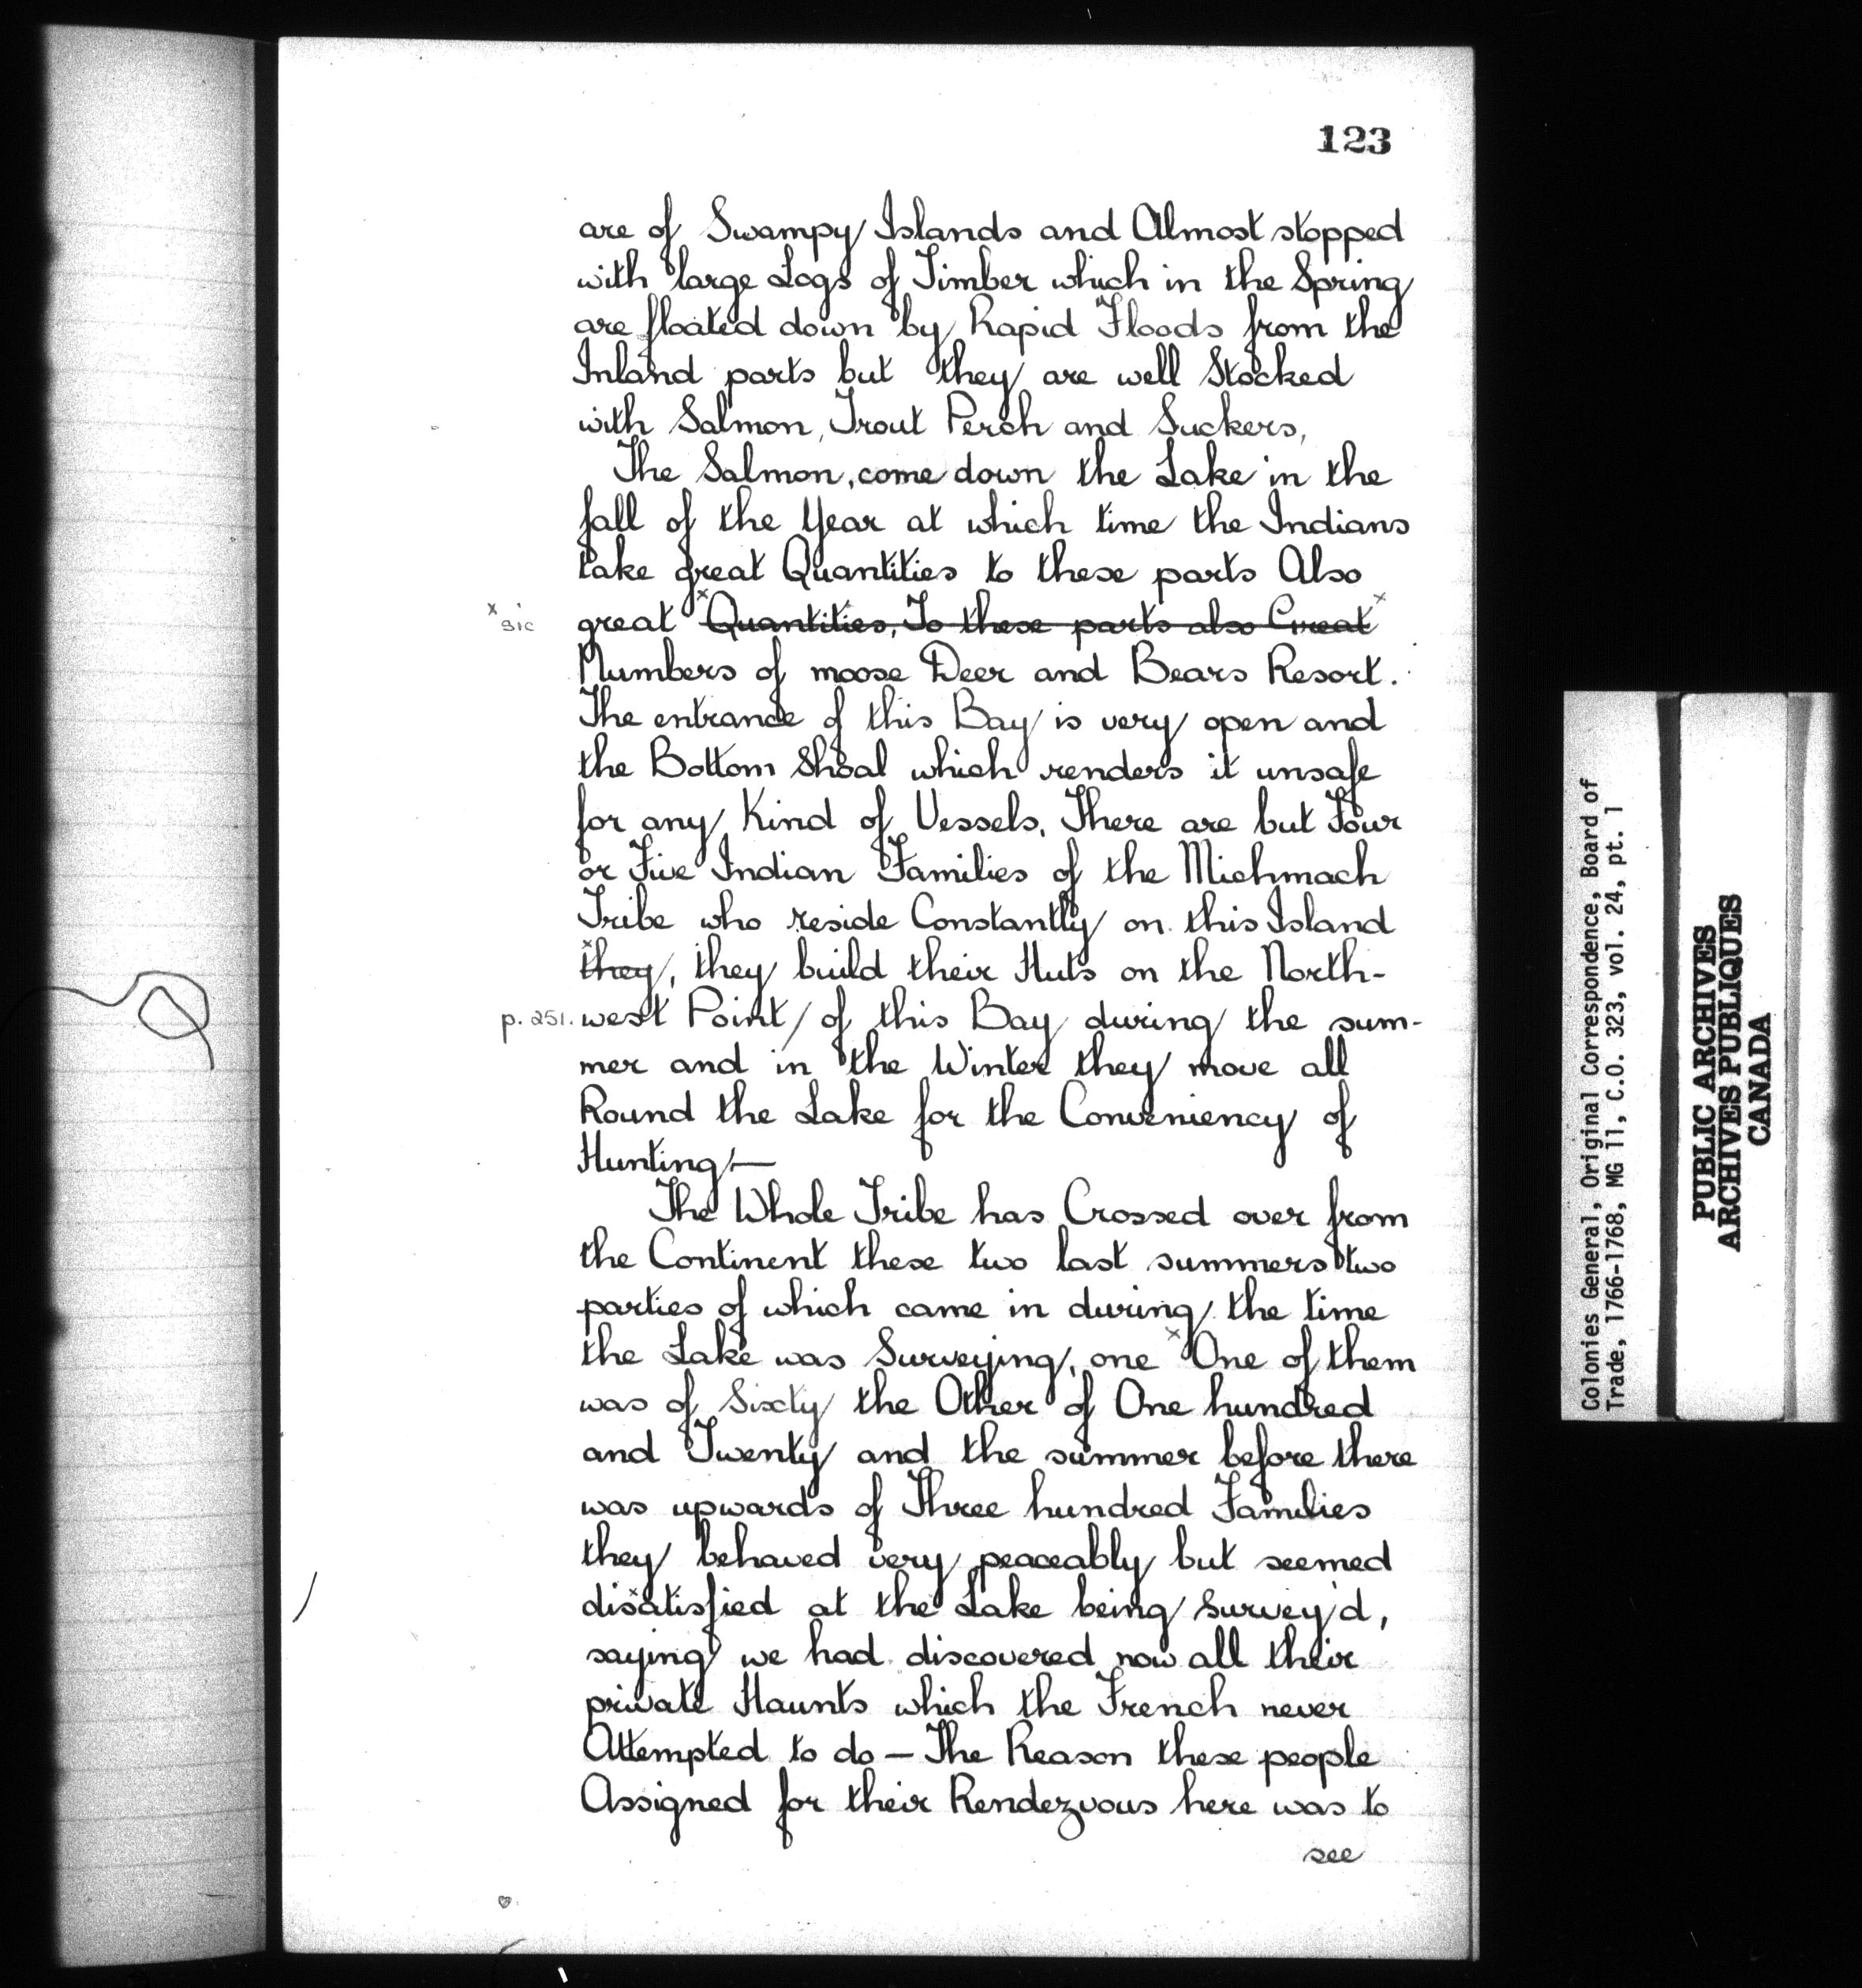 123
are of Swampy Islands and Almost stopped
with large Logs of Timber which in the Spring
are floated down by Rapid Floods from the
Inland parts but they are well Stocked
with Salmon, Trout Perch and Suckers,
The Salmon, come down the Lake in the
fall of the Year at which time the Indians
take great Quantities to these parts Also
x sic great x Quantities, To these parts also Great x
Numbers of moose Deer and Bears Resort.
The entrance of this Bay is very open and
the Bottom Shoal which renders it unsafe
for any Kind of Vessels, There are but Four
or Five Indian Families of the Michmach
Tribe who reside Constantly on this Island
x they, they build their Huts on the North-
p. 251. west Point / of this Bay during the sum-
mer and in the Winter they move all
Round the Lake for the Conveniency of
Hunting,—
The Whole Tribe has Crossed over from
the Continent these two last summers two
parties of which came in during the time
the Lake was Surveying, one x One of them
was of Sixty the Other of One hundred
and Twenty and the summer before there
was upwards of Three hundred Families
they behaved very peaceably but seemed
disatisfied at the Lake being Survey'd,
saying we had discovered now all their
private Haunts which the French never
Attempted to do — The Reason these people
Assigned for their Rendezvous here was to
see
Colonies General, Original Correspondence, Board of
Trade, 1766-1768, MG 11, C.O. 323, vol. 24, pt. 1
PUBLIC ARCHIVES
ARCHIVES PUBLIQUES
CANADA